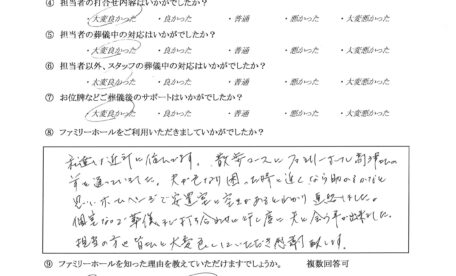 ④ 担当者の打合せ内容はいかがでしたか？
・大変良かった ・良かった ・普通 ・悪かった ・大変悪かった
⑤ 担当者の葬儀中の対応はいかがでしたか？
・大変良かった ・良かった ・普通 ・悪かった ・大変悪かった
⑥ 担当者以外、スタッフの葬儀中の対応はいかがでしたか？
・大変良かった ・良かった ・普通 ・悪かった ・大変悪かった
⑦ お位牌などご葬儀後のサポートはいかがでしたか？
・大変良かった ・良かった ・普通 ・悪かった ・大変悪かった
⑧ ファミリーホールをご利用いただきましていかがでしたか？
私達は近所に住んでます。散歩コースにファミリーホール
前を通っていました。夫が亡くなり困った時に近くなら助かるかなと
思いホームページで安置室に空きがあるとわかり連絡しました。
個室なので葬儀 打ち合わせに 度に夫と会う事が出来ました。
担当の方も皆さん大変良くしていただき感謝致します。
⑨ ファミリーホールを知った理由を教えていただけますでしょうか。 複数回答可